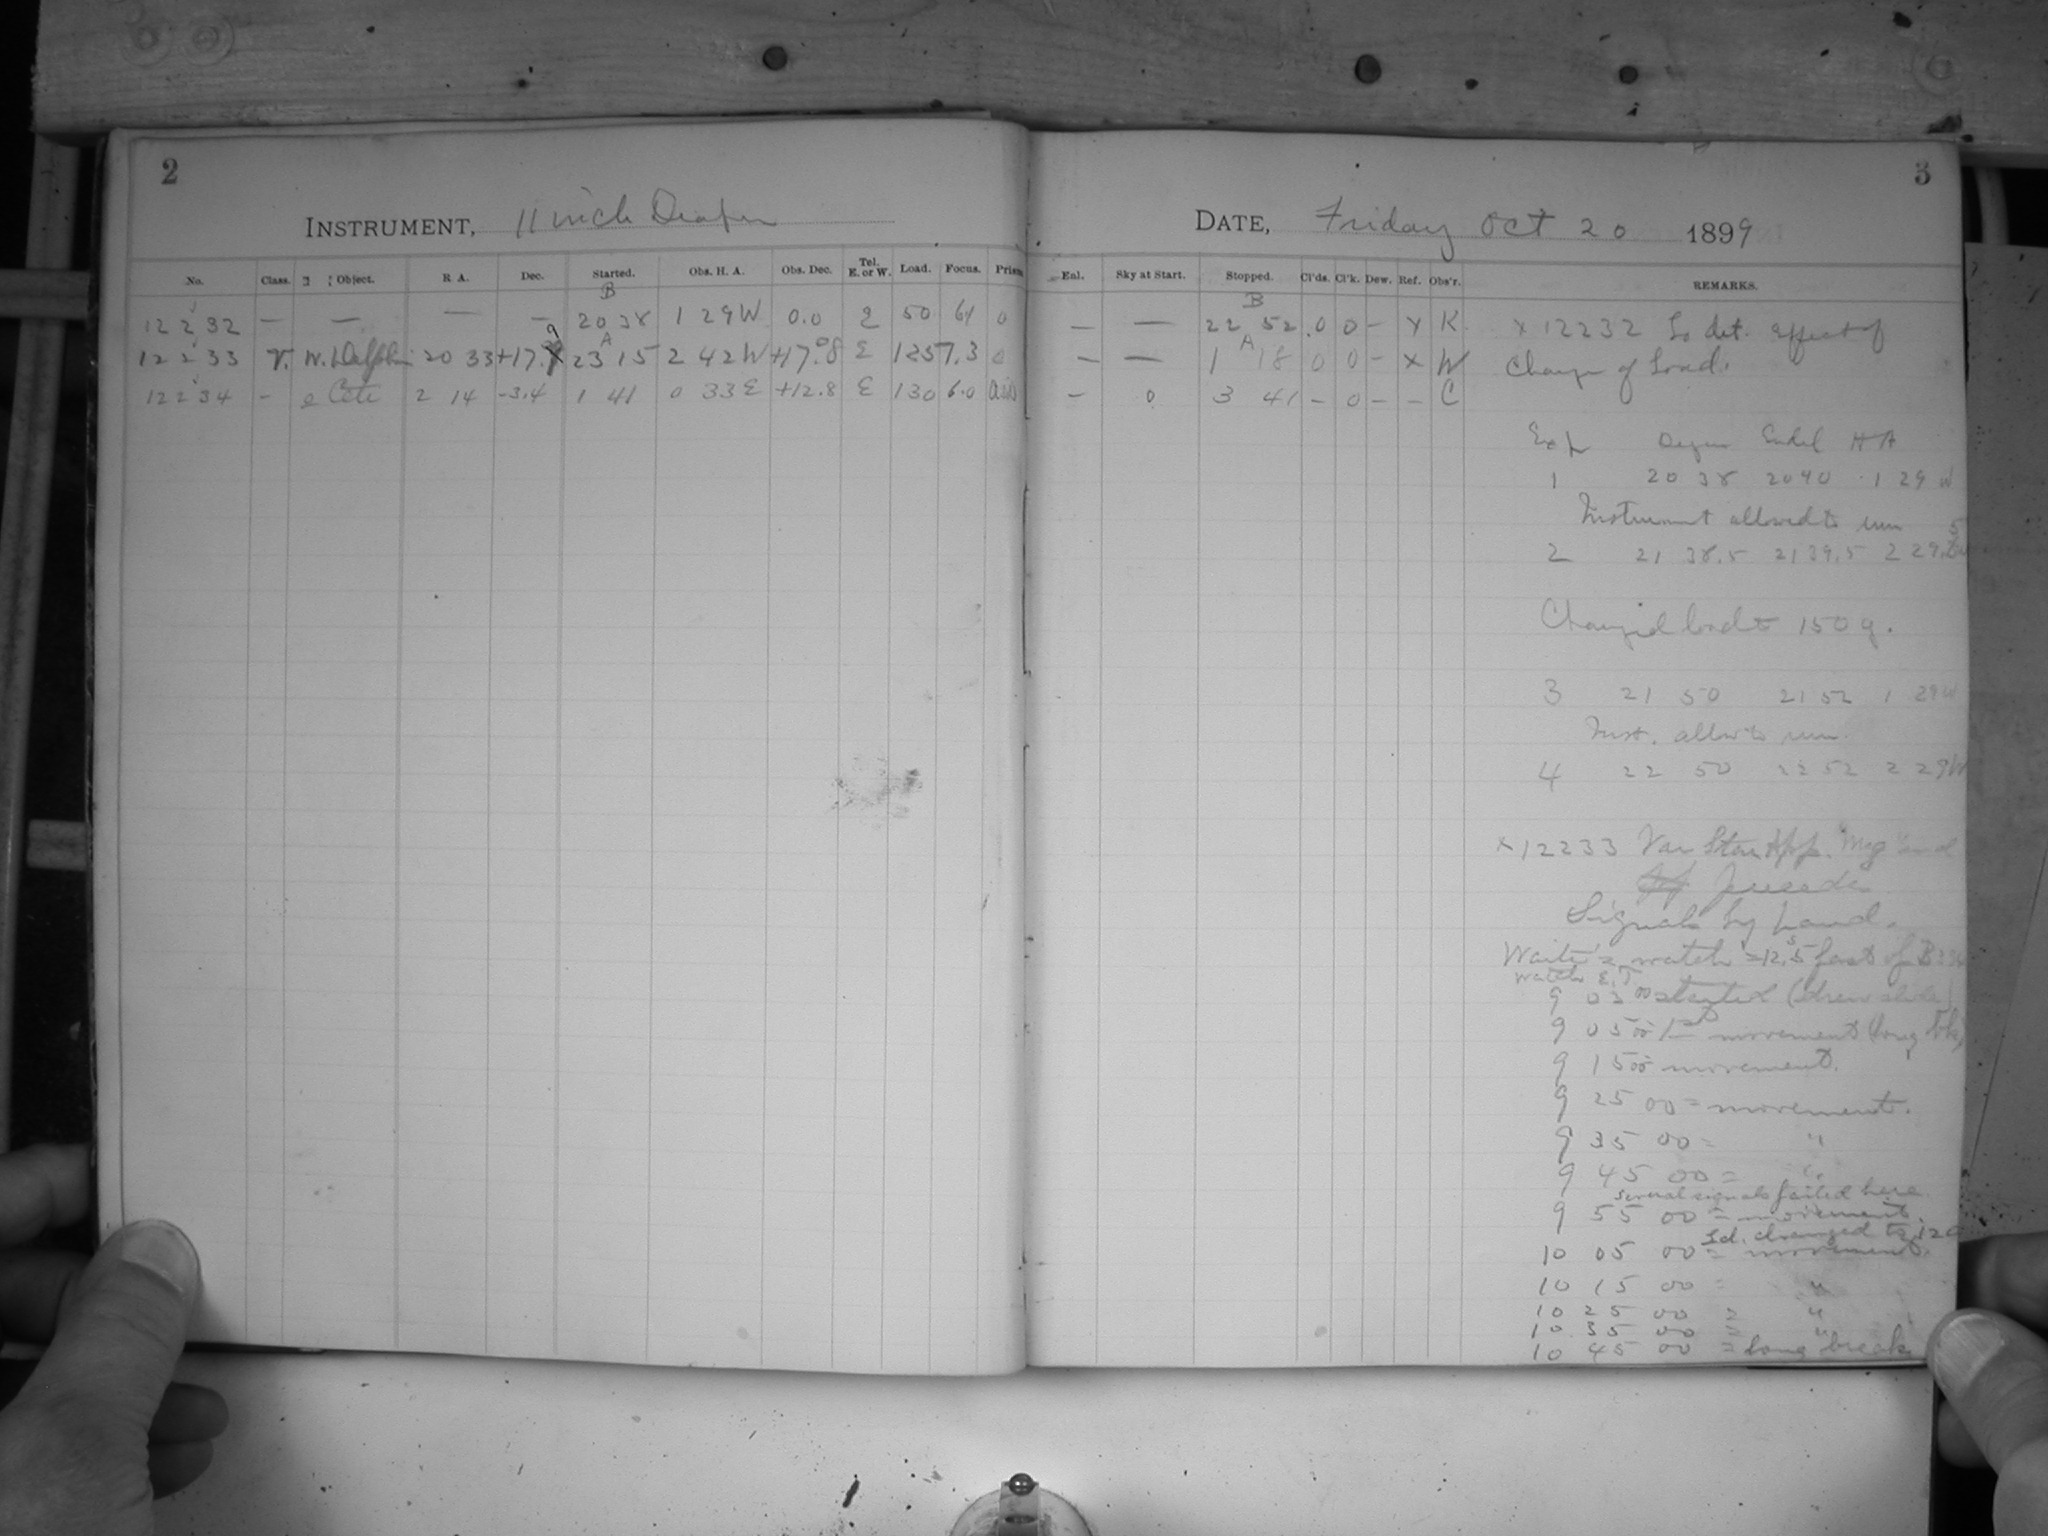 2
INSTRUMENT, 11 inch Draper
No. Class. Object. R A. Dec. Started. Obs. H. A. Obs. Dec. Tel. E. or W. Load. Focus. Prism
B
12232 — — — — 20 38 1 29 W 0.0 E 50 61 0
A
12233 V. W. Delphini 20 33 +17. 23 15 2 42 W +17.°8 E 125 7.3 0
12234 - o Ceti 2 14 -3.4 1 41 0 33 E +12.8 E 130 6.0
3
DATE, Friday Oct 20 1899
Enl. Sky at Start. Stopped. Cl'ds. Cl'k. Dew. Ref. Obs'r. REMARKS.
B
— — 22 52 0 0 - x K. x 12232 To det. effect of
A
— — 1 18 0 0 - x W Change of Load.
- 0 3 41 - 0 - - C
Exp Began Ended H A
1 20 38 20 40 1 29 W
Instrument allowed to run
2 21 38.5 21 39.5 2 29
Changed load to 150 g.
3 21 50 21 52 1 29 W
Inst. allow to run.
4 22 50 22 52 2 29 W
x 12233 Var Star App. "Mg" and
Signals by hand.
watch = 12.ˢ5 fast of B
watch E.T.
9 03 00 started (drew slide)
9 05 00 1st movement (long
9 15 00 movement.
9 25 00 = movement.
9 35 00 = "
9 45 00 = "
several signals failed here
9 55 00 = movement.
Ld. changed to 120
10 05 00 = movement.
10 15 00 = "
10 25 00 = "
10 35 00 = "
10 45 00 = long break